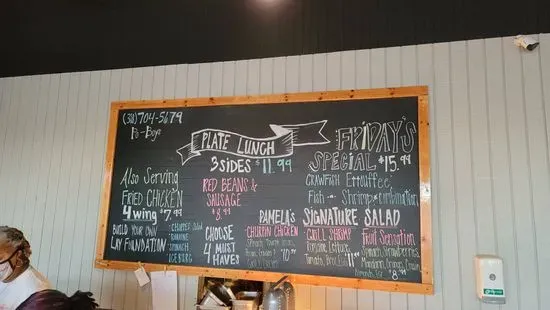 (318) 704-5679
Po-Boys
PLATE LUNCH
3 SIDES $11.99
FRIDAY'S
SPECIAL $15.99
CRAWFISH Ettouffee
Fish - Shrimp - combination
Also Serving
FRIED CHICKEN
4 wing $7.99
RED BEANS &
SAUSAGE
$8.99
BUILD YOUR OWN
LAY FOUNDATION
ROMAINE
SPINACH
ICEBURG
CHOOSE
4 MUST
HAVES
PAMELA'S
SIGNATURE SALAD
CHICKEN
GRILL SHRIMP
Romaine Lettuce
Fruit Sensation
Spinach, Strawberries,
Mandarin Oranges,
Almonds
8.99